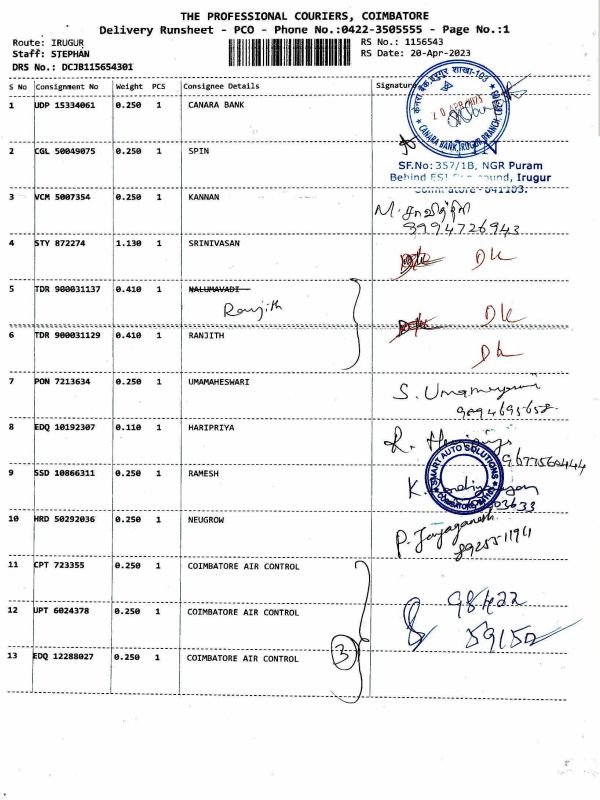 THE PROFESSIONAL COURIERS, COIMBATORE
Delivery Runsheet - PCO - Phone No.:0422-3505555 - Page No.:1
Route: IRUGUR RS No.: 1156543
Staff: STEPHAN RS Date: 20-Apr-2023
DRS No.: DCJB115654301
S No Consignment No Weight PCS Consignee Details Signature
1 UDP 15334061 0.250 1 CANARA BANK
20 APR 2023
CANARA BANK, IRUGUR BRANCH
2 CGL 50049075 0.250 1 SPIN
SF.No: 357/1B, NGR Puram
Behind ESI Irugur
3 VCM 5007354 0.250 1 KANNAN
9994726943
4 STY 872274 1.130 1 SRINIVASAN
5 TDR 900031137 0.410 1 NALUMAVADI
Ranjith
6 TDR 900031129 0.410 1 RANJITH
7 PON 7213634 0.250 1 UMAMAHESWARI
S. Umamaheswari
9894695658
8 EDQ 10192307 0.110 1 HARIPRIYA
9677560444
9 SSD 10866311 0.250 1 RAMESH
SMART AUTO SOLUTIONS
10 HRD 50292036 0.250 1 NEUGROW
P. Jeyaganesh
8925511941
11 CPT 723355 0.250 1 COIMBATORE AIR CONTROL
12 UPT 6024378 0.250 1 COIMBATORE AIR CONTROL
98422
59152
13 EDQ 12288027 0.250 1 COIMBATORE AIR CONTROL
3